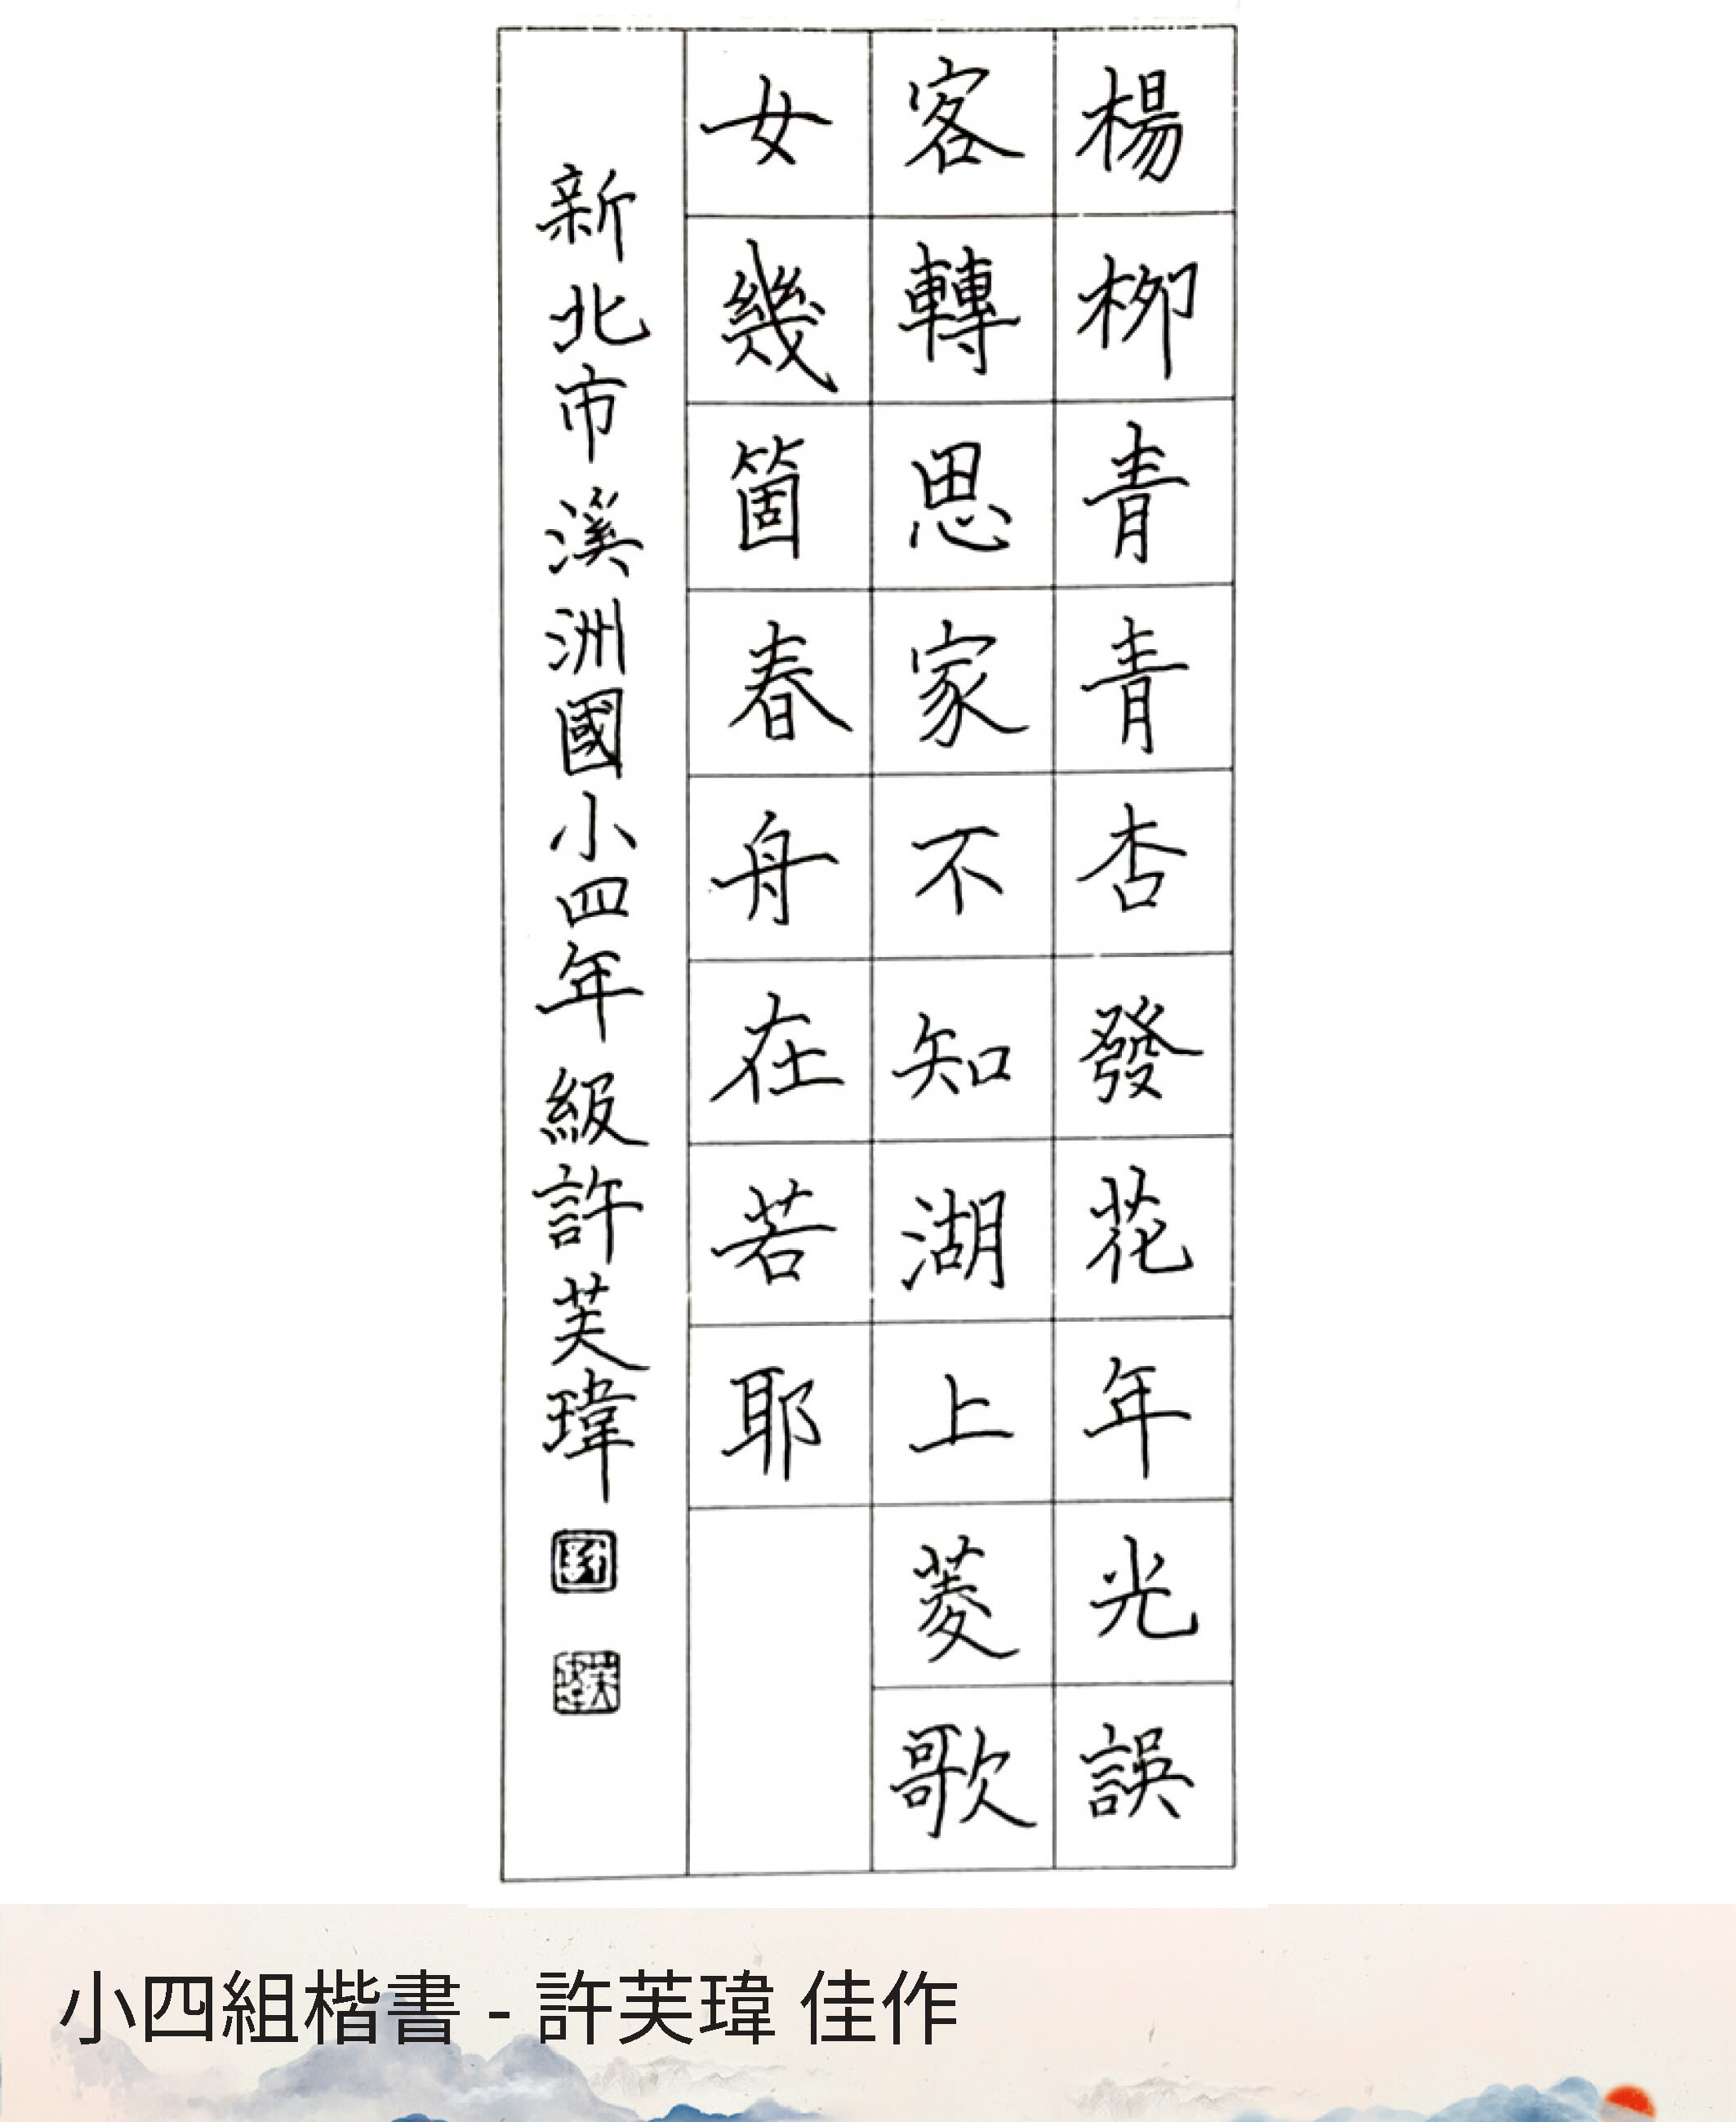 楊柳青青杏發花年光誤
客轉思家不知湖上菱歌
女幾箇春舟在若耶
新北市溪洲國小四年級許芙瑋
小四組楷書 - 許芙瑋 佳作